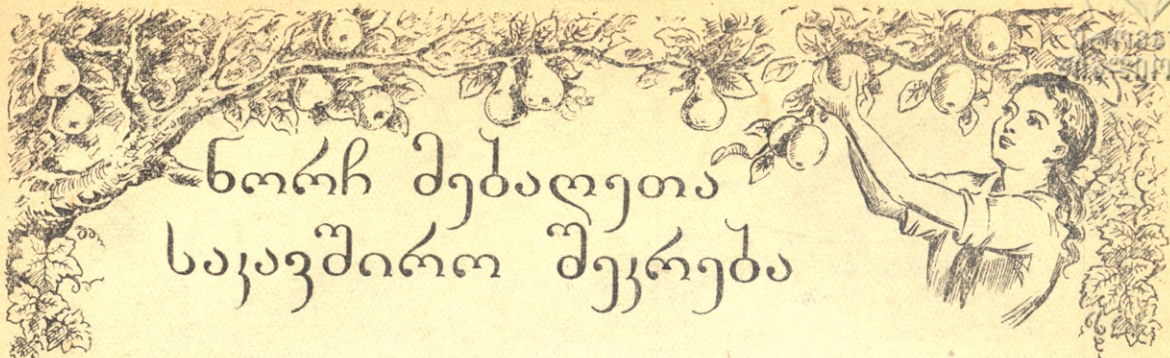 ნორჩ მებაღეთა
საკავშირო შეკრება